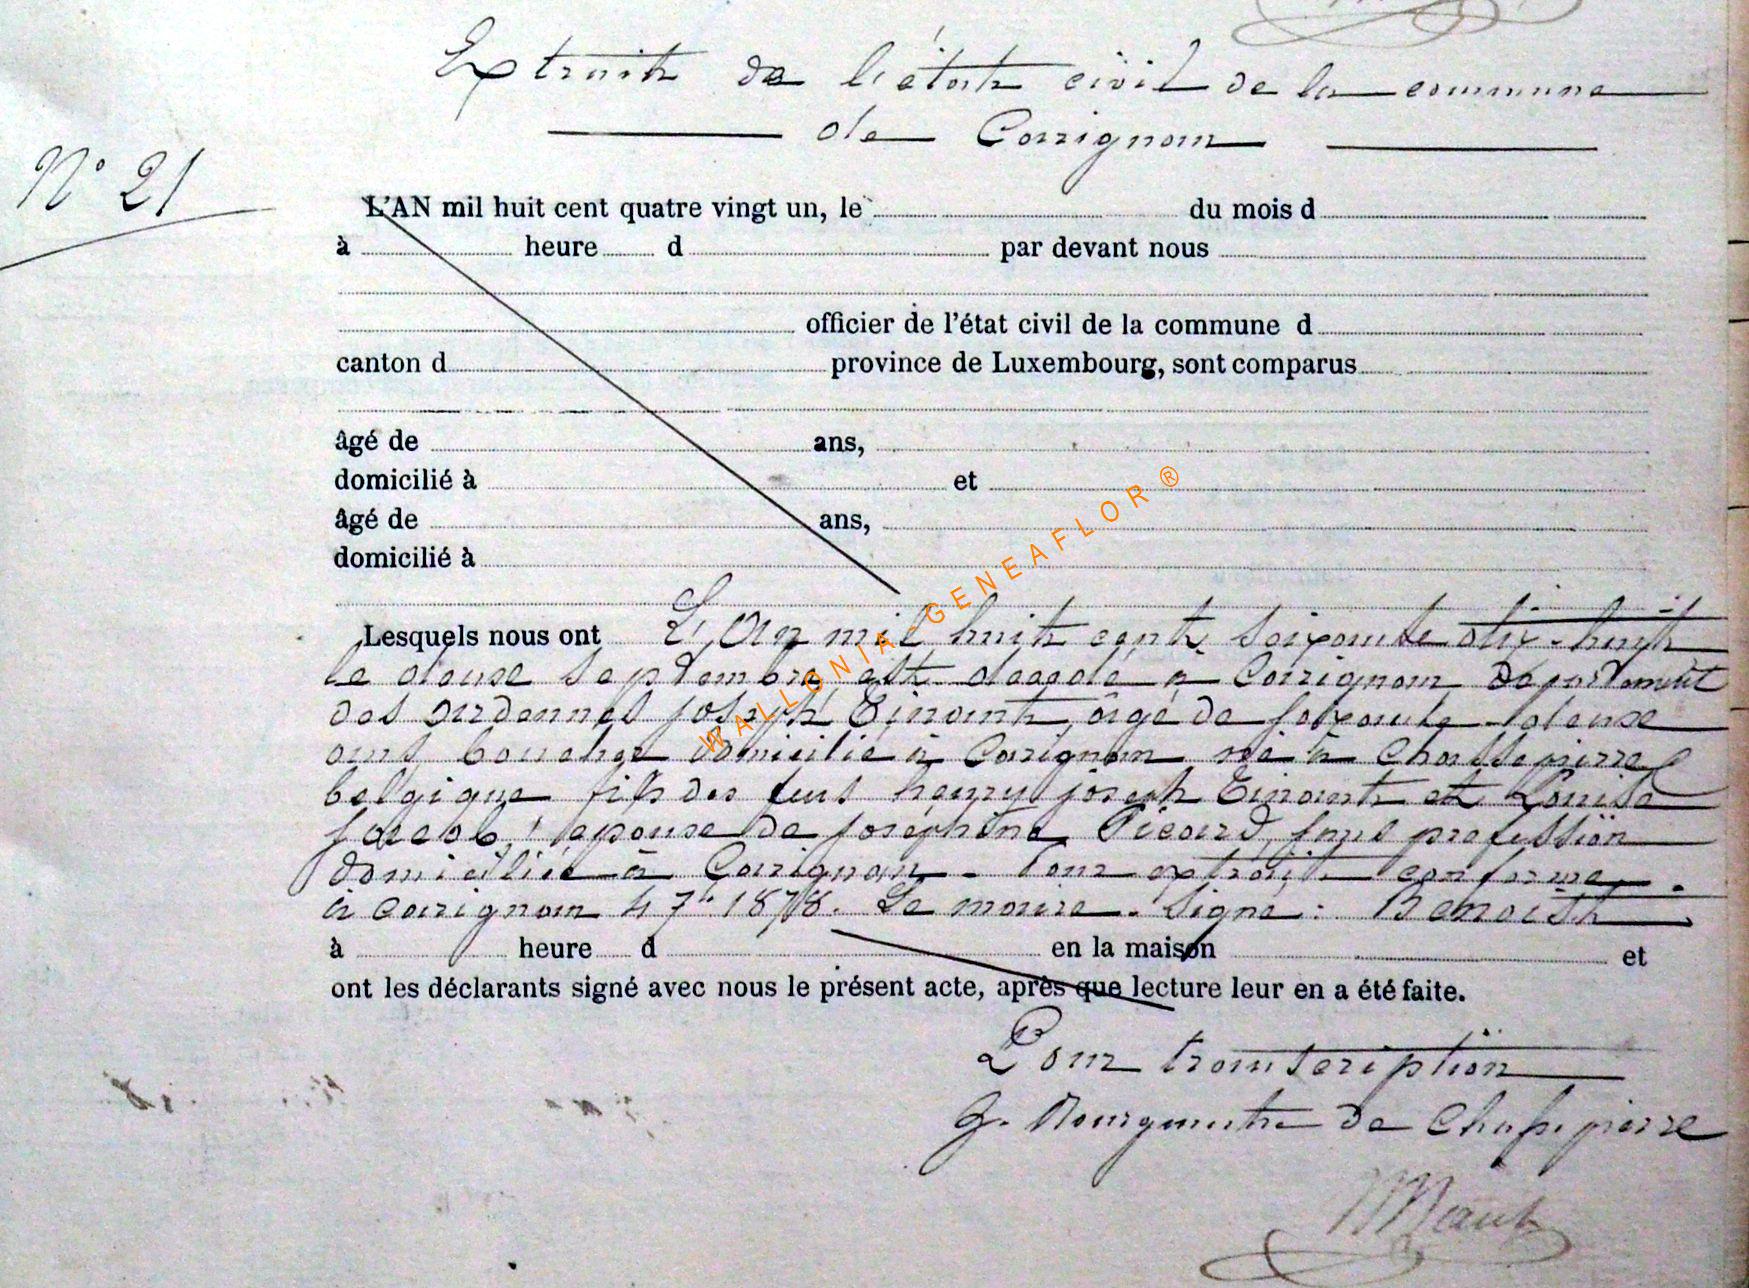 Extrait de l'état civil de la commune
de Carignan
N° 21
L'AN mil huit cent quatre vingt un, le du mois d
à heure d par devant nous
officier de l'état civil de la commune d
canton d province de Luxembourg, sont comparus
âgé de ans,
domicilié à et
âgé de ans,
domicilié à
Lesquels nous ont L'An mil huit cent soixante dix-huit
le douze septembre est décédé à Carignan Département
des Ardennes joseph Tinant, âgé de soixante-douze
ans boucher domicilié à Carignan né à Chassepierre
belgique fils des feus henry joseph Tinant et Louise
jacob, épouse de joséphine Picard, sans profession
domiciliée à Carignan - Pour extrait conforme.
à Carignan 4 7bre 1878. Le maire. Signé: Benoist
à heure d en la maison et
ont les déclarants signé avec nous le présent acte, après que lecture leur en a été faite.
Pour transcription
Bourgmestre de Chassepierre
WALLONIA-GENEAFLOR ®